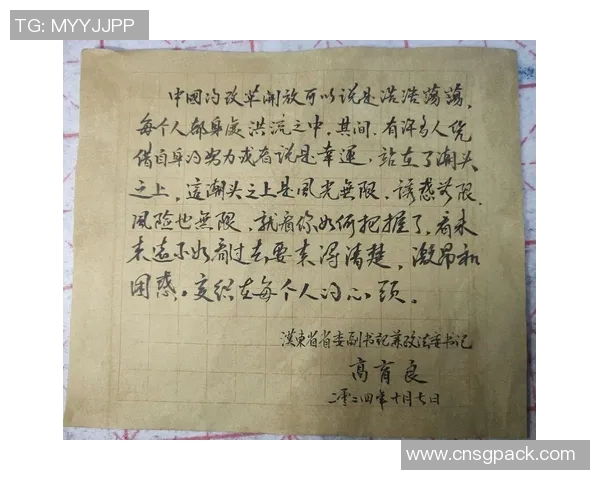 TG: MYYJJPP
中國的改革開放可以说是浩浩蕩蕩,
每个人都身處洪流之中。其间,有许多人凭
借自身的努力或者说是幸運,站在了潮头
之上,這潮头之上是風光無限,诱惑無限,
風险也無限,就看你如何把握了,看未
来遠不如看过去要来得清楚,激昂和
困惑。交织在每个人的心頭。
漢東省省委副书記兼政法委书记
高育良
二零二四年十月七日
www.cnsgpack.com